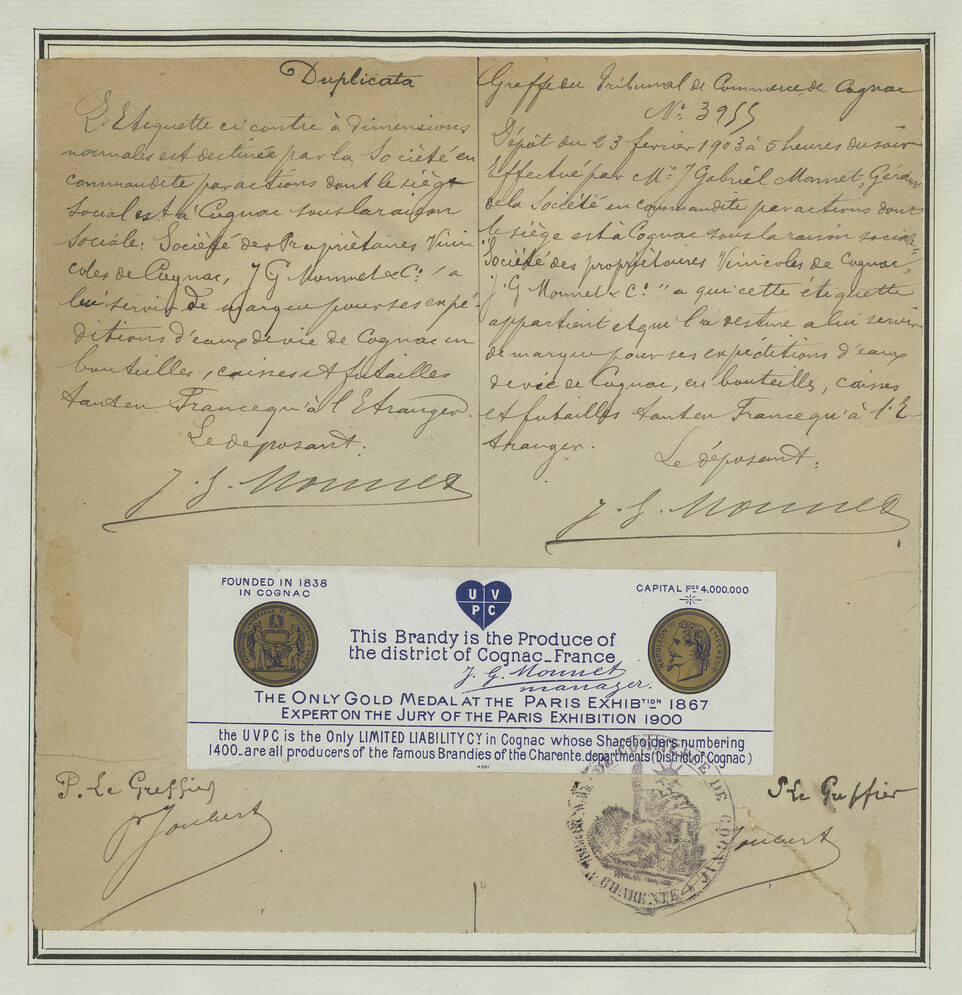 Duplicata
L'Etiquette ci contre à dimensions
normales est destinée par la Société en
commandite par actions dont le siège
social est à Cognac sous la raison
sociale: Société des Propriétaires Vini
coles de Cognac, J G Monnet & Cº, a
lui servir de marque pour ses expé-
ditions d'eaux de vie de Cognac en
bouteilles, caisses et futailles
tant en France qu'à l'Etranger.
Le déposant.
J. G. Monnet
Greffe du Tribunal de Commerce de Cognac
Nº 3955
Dépôt du 23 février 1903 à 5 heures du soir
Effectué par Mr J Gabriel Monnet, Gérant
de la Société en commandite par actions dont
le siège est à Cognac sous la raison sociale=
"Société des propriétaires Vinicoles de Cognac,
J. G Monnet & Cº" a qui cette étiquette
appartient et qui l'a destine a lui servir
de marque pour ses expéditions d'eaux
de vie de Cognac, en bouteilles, caisses
et futailles tant en France qu'à l'E
tranger.
Le déposant:
J. G. Monnet
FOUNDED IN 1838
IN COGNAC
UV
PC
CAPITAL Fcs 4.000.000
NAPOLEON III EMPEREUR
This Brandy is the Produce of
the district of Cognac_France
J. G. Monnet
manager.
THE ONLY GOLD MEDAL AT THE PARIS EXHIBTION 1867
EXPERT ON THE JURY OF THE PARIS EXHIBITION 1900
the UVPC is the Only LIMITED LIABILITY CY in Cognac whose Shareholders numbering
1400_are all producers of the famous Brandies of the Charente.departments (District of Cognac)
P. Le Greffier
Joubert
P Le Greffier
Joubert
COMMERCE DE COGNAC
CHARENTE